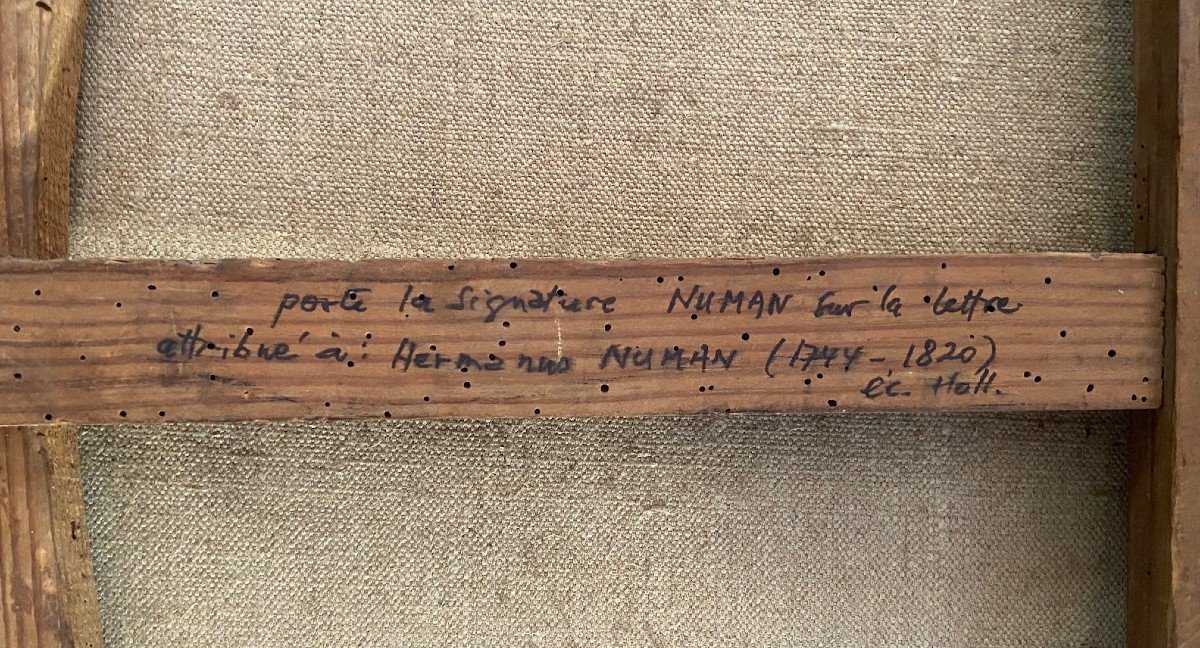 porte la signature NUMAN sur la lettre
attribué à: Hermanus NUMAN (1744-1820)
éc. Holl.